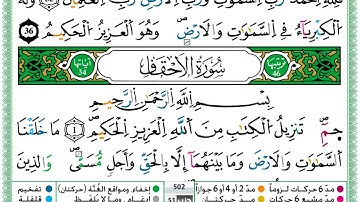 فَلِلَّهِ الْحَمْدُ رَبِّ السَّمَٰوَٰتِ وَرَبِّ الْأَرْضِ رَبِّ الْعَٰلَمِينَ وَلَهُ
الْكِبْرِيَآءُ فِي السَّمَٰوَٰتِ وَالْأَرْضِ وَهُوَ الْعَزِيزُ الْحَكِيمُ 36
ترتيبها 46 سُورَةُ الْأَحْقَافِ آياتها 34
بِسْمِ اللَّهِ الرَّحْمَٰنِ الرَّحِيمِ
حمٓ ١ تَنزِيلُ الْكِتَٰبِ مِنَ اللَّهِ الْعَزِيزِ الْحَكِيمِ مَا خَلَقْنَا
السَّمَٰوَٰتِ وَالْأَرْضَ وَمَا بَيْنَهُمَآ إِلَّا بِالْحَقِّ وَأَجَلٍ مُّسَمًّى وَالَّذِينَ
مدّ 6 حركات لزوماً مدّ 2 أو 4 أو 6 جوازاً 502 إخفاء، ومواقع الغُنَّة (حركتان) تفخيم
مدّ مشبع 6 حركات مدّ حركتان إدغام، وما لا يُلفظ قلقلة